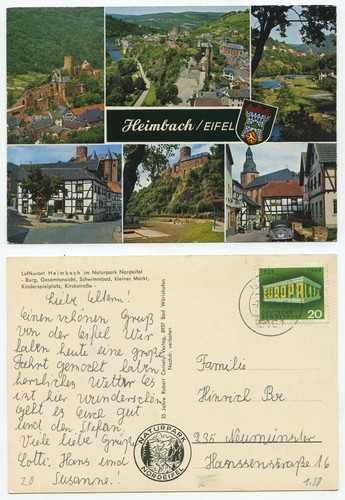 Heimbach / EIFEL
Luftkurort Heimbach im Naturpark Nordeifel
- Burg, Gesamtansicht, Schwimmbad, kleiner Markt,
Kinderspielplatz, Kirchstraße -
Liebe Eltern!
Einen schönen Gruß
von der Eifel Wir
haben heute eine große
Fahrt gemacht haben
herrliches Wetter Es
ist hier wunderschön
geht es Euch gut
und den Stefan.
Viele liebe Grüße
Lotti: Hans und
Susanne!
20
35 Jahre Robert Verlag, 8937 Bad Wörishofen
Nachdr. verboten
NATURPARK
NORDEIFEL
1928 1969
EUROPA
CEPT
DEUTSCHE
20
Familie
Hinrich Br
235 Neumünster
Hanssenstraße 16